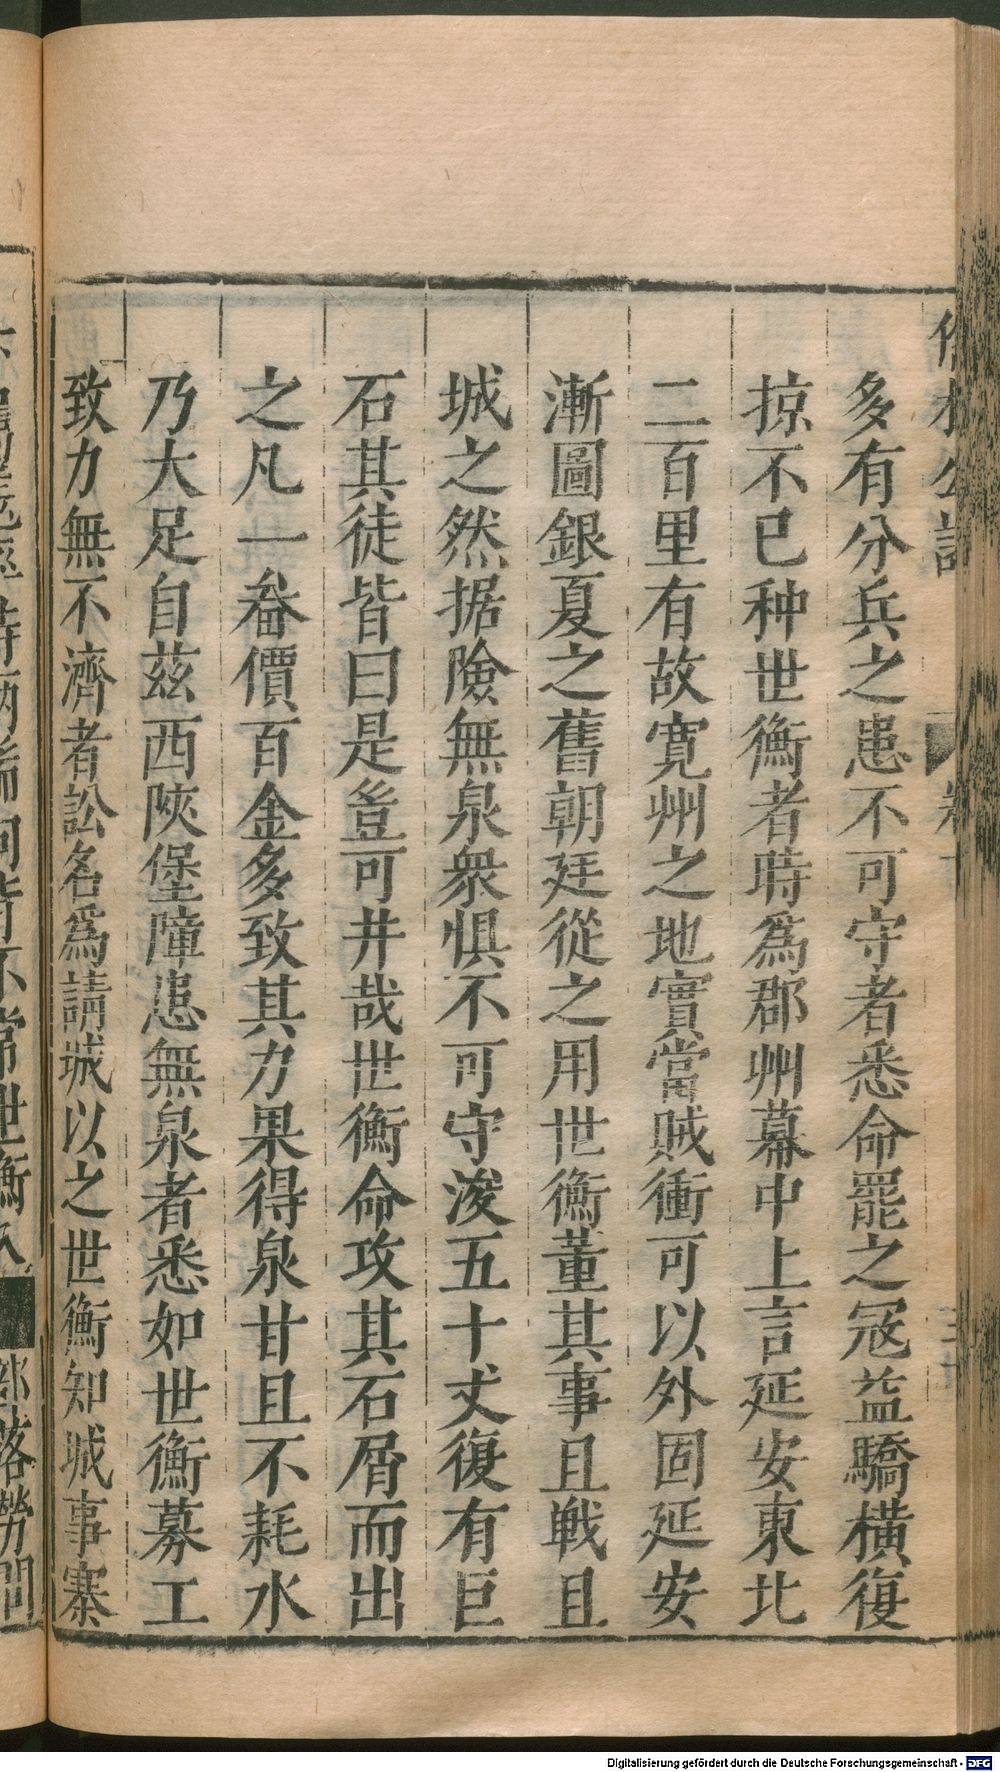 多有分兵之患不可守者悉命罷之冦益驕橫復
掠不已种世衡者時爲郡州幕中上言延安東北
二百里有故寛州之地實當賊衝可以外固延安
漸圖銀夏之舊朝廷從之用世衡董其事且戦且
城之然据險無泉衆惧不可守浚五十丈復有巨
石其徒皆曰是豈可井哉世衡命攻其石屑而出
之凡一畚價百金多致其力果得泉甘且不耗水
乃大足自茲西陝堡障患無泉者悉如世衡募工
致力無不濟者訟名爲請城以之世衡知城事寨
部落勞問
Digitalisierung gefördert durch die Deutsche Forschungsgemeinschaft - DFG